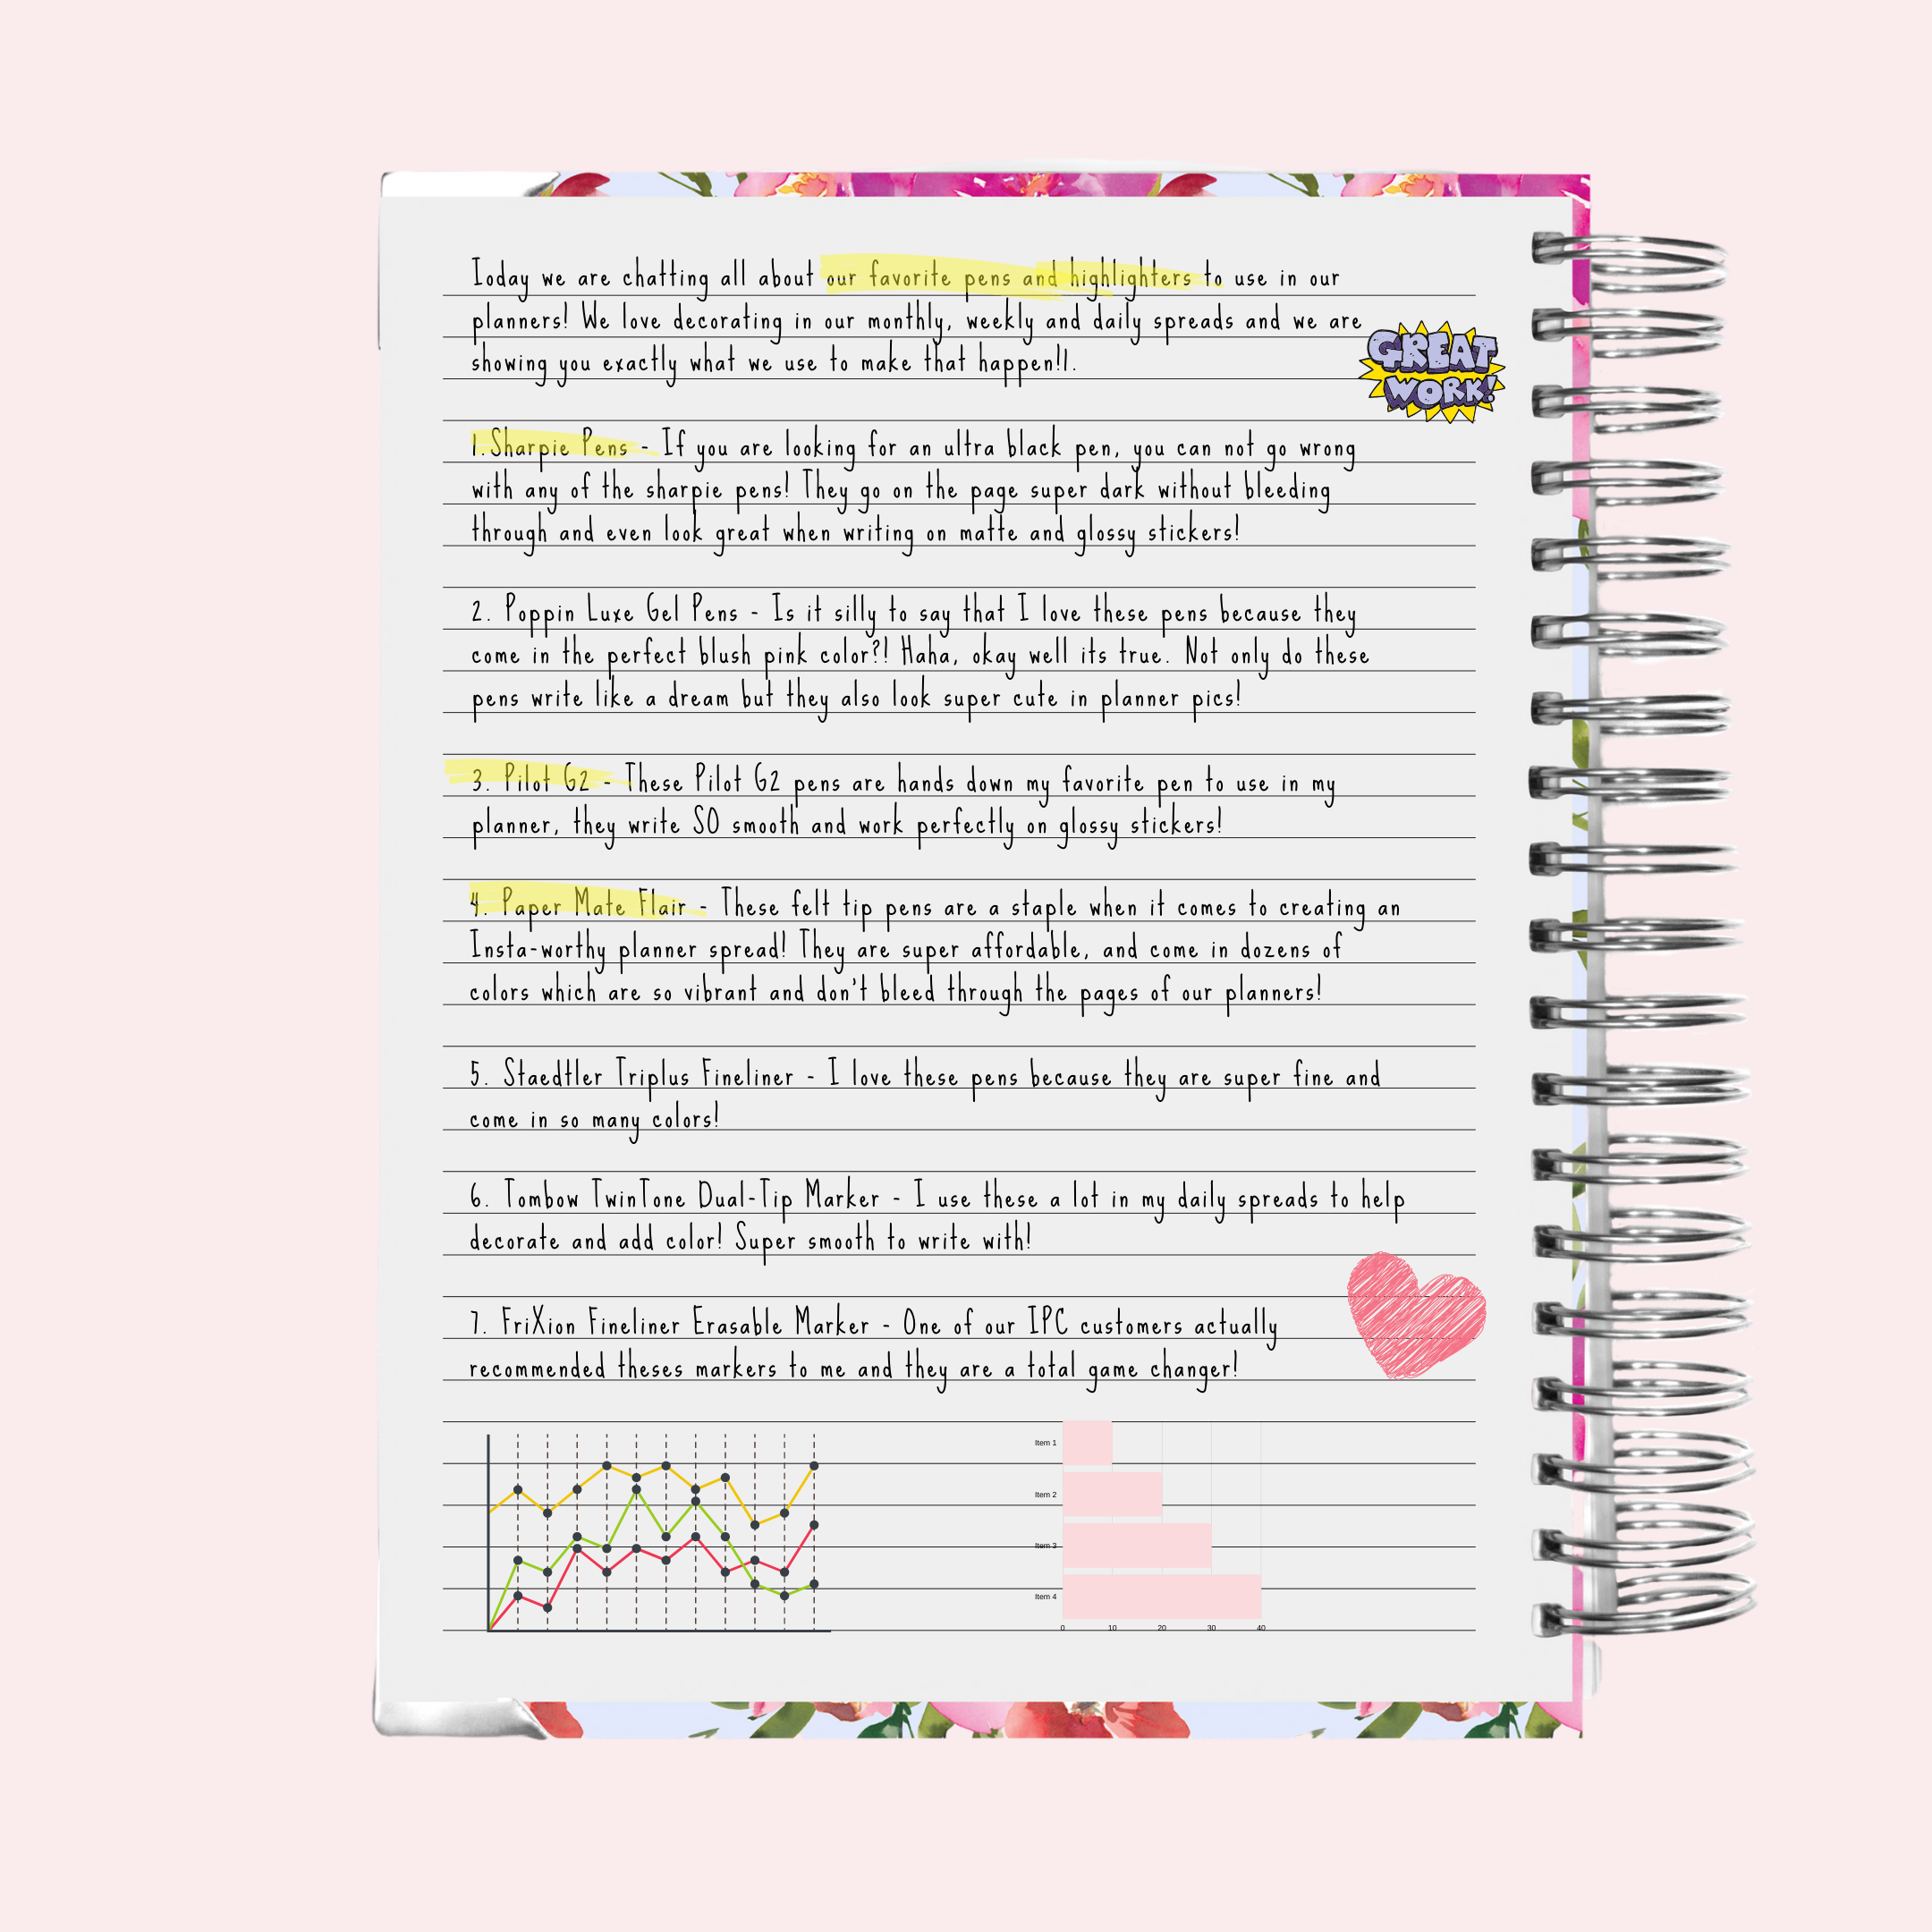 Today we are chatting all about our favorite pens and highlighters to use in our
planners! We love decorating in our monthly, weekly and daily spreads and we are
showing you exactly what we use to make that happen!!.
GREAT
WORK!
1.Sharpie Pens - If you are looking for an ultra black pen, you can not go wrong
with any of the sharpie pens! They go on the page super dark without bleeding
through and even look great when writing on matte and glossy stickers!
2. Poppin Luxe Gel Pens - Is it silly to say that I love these pens because they
come in the perfect blush pink color?! Haha, okay well its true. Not only do these
pens write like a dream but they also look super cute in planner pics!
3. Pilot G2 - These Pilot G2 pens are hands down my favorite pen to use in my
planner, they write SO smooth and work perfectly on glossy stickers!
4. Paper Mate Flair - These felt tip pens are a staple when it comes to creating an
Insta-worthy planner spread! They are super affordable, and come in dozens of
colors which are so vibrant and don't bleed through the pages of our planners!
5. Staedtler Triplus Fineliner - I love these pens because they are super fine and
come in so many colors!
6. Tombow TwinTone Dual-Tip Marker - I use these a lot in my daily spreads to help
decorate and add color! Super smooth to write with!
7. FriXion Fineliner Erasable Marker - One of our IPC customers actually
recommended theses markers to me and they are a total game changer!
Item 1
Item 2
Item 3
Item 4
0 10 20 30 40